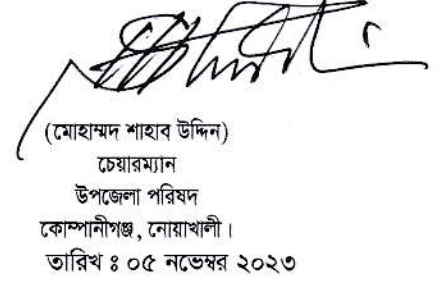 (মোহাম্মদ শাহাব উদ্দিন)
চেয়ারম্যান
উপজেলা পরিষদ
কোম্পানীগঞ্জ, নোয়াখালী।
তারিখ ঃ ০৫ নভেম্বর ২০২৩